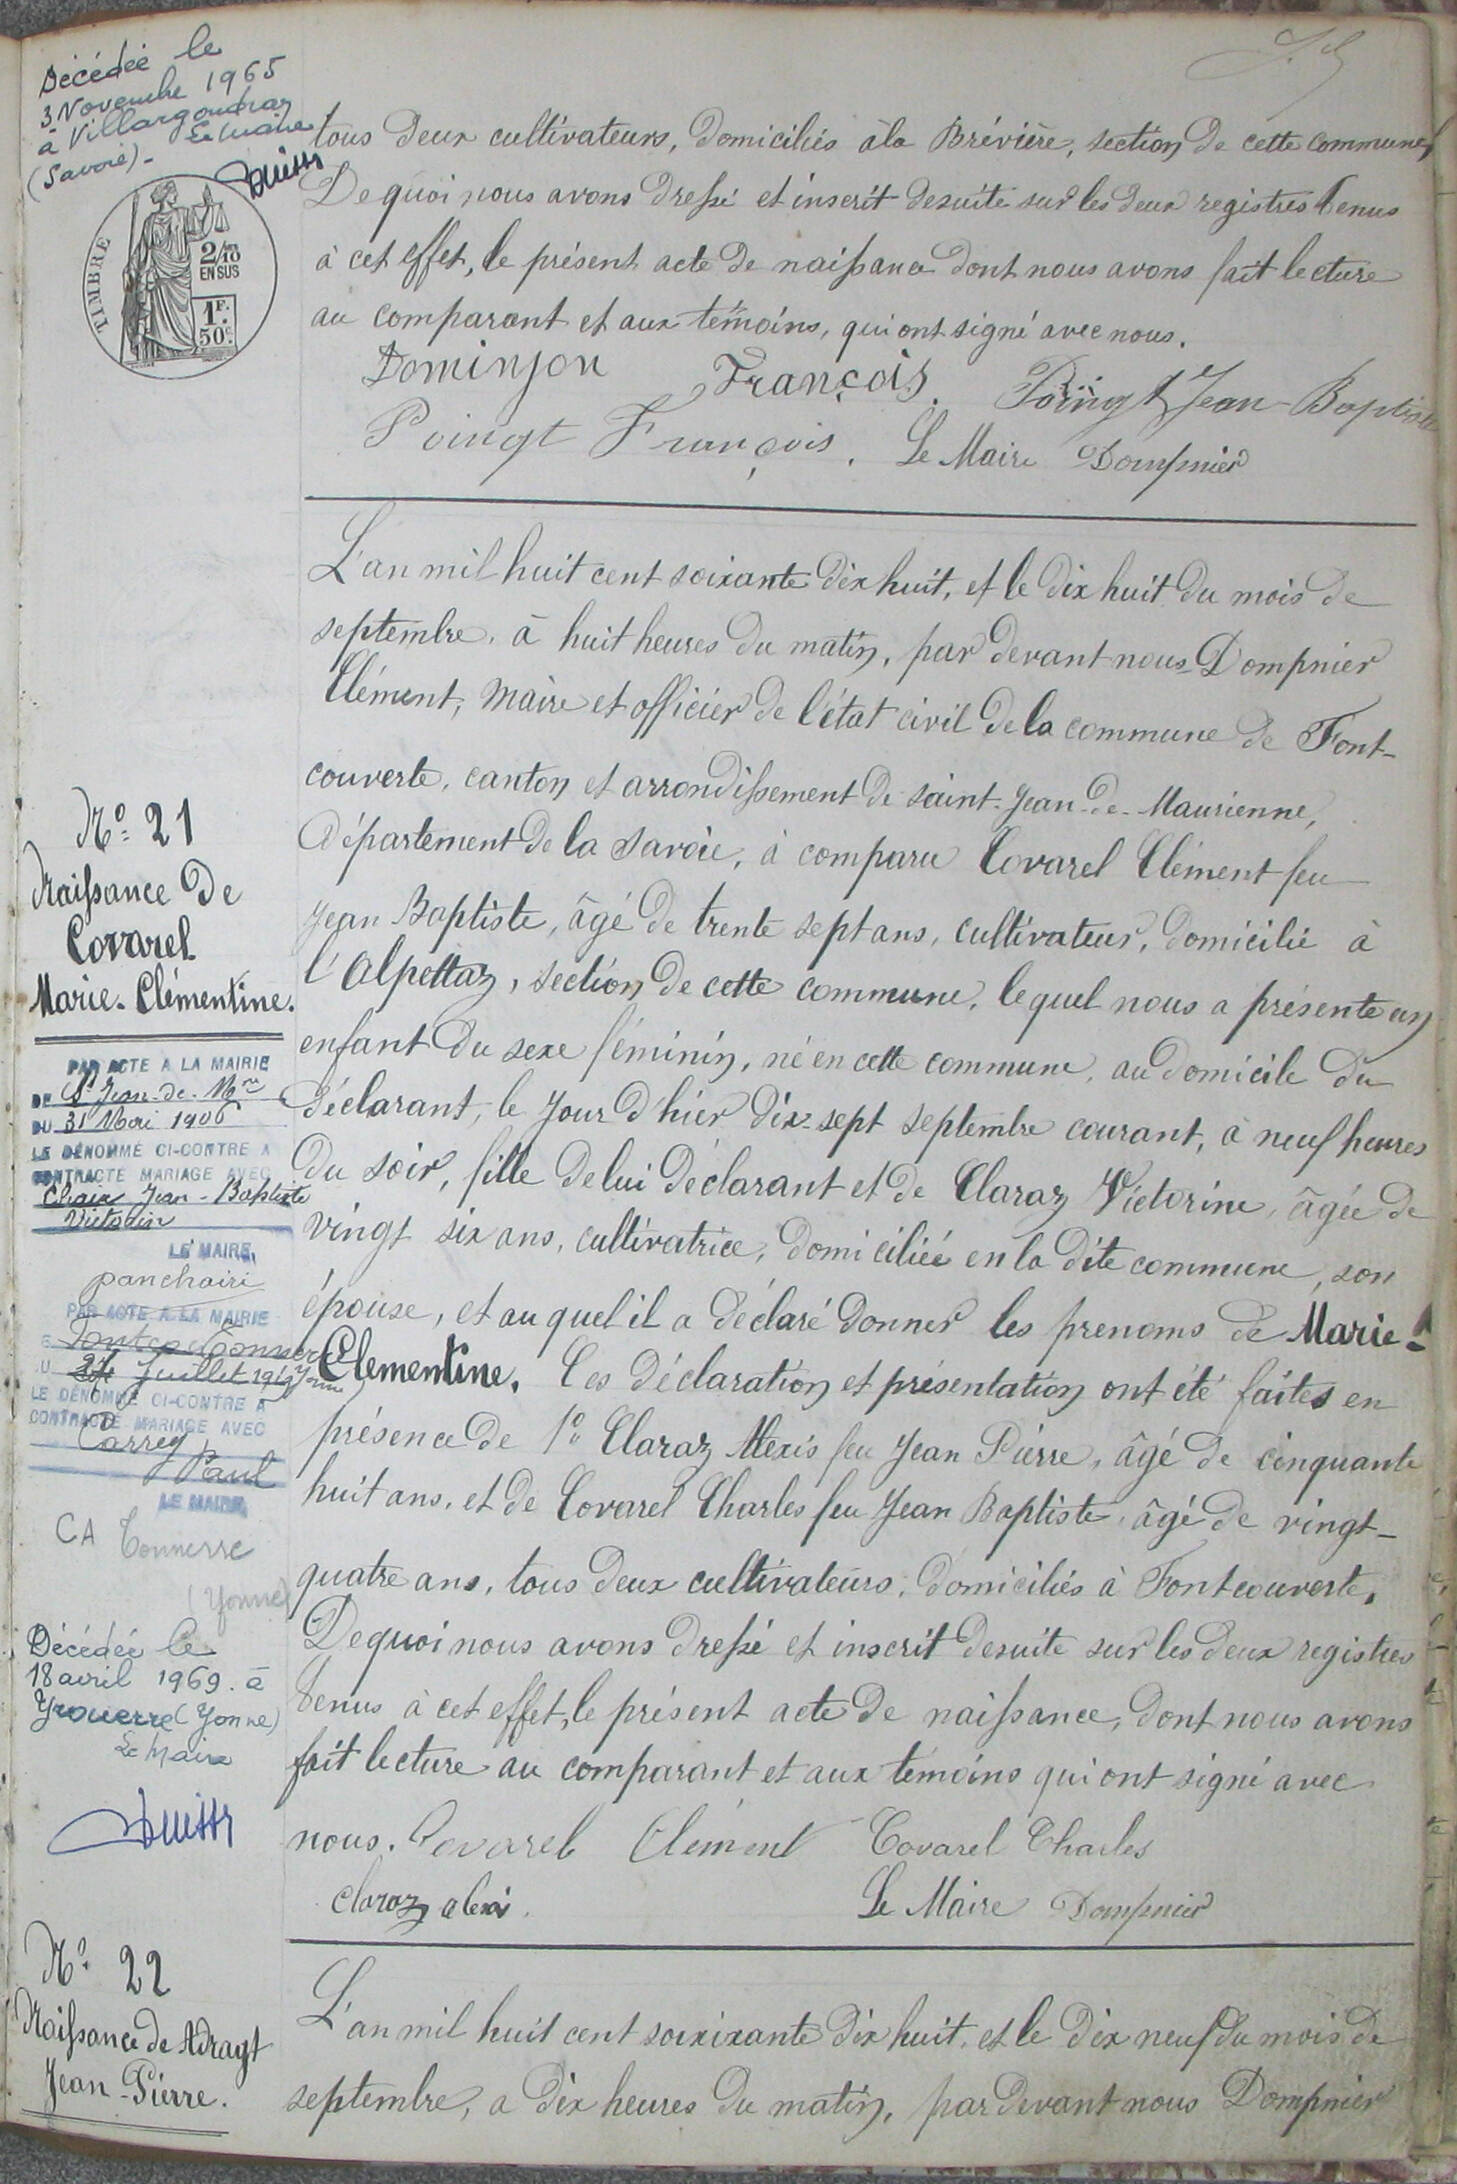 Décédée le
3 Novembre 1965
à Villargondran
(Savoie) - Le Maire
TIMBRE
2/10
EN SUS
1F.
50c.
tous deux cultivateurs, domiciliés à la Brévière, section de cette commune,
De quoi nous avons dressé et inscrit desuite sur les deux registres tenus
à cet effet, le présent acte de naissance dont nous avons fait lecture
au comparant et aux témoins, qui ont signé avec nous.
Dominjon François. Poingt Jean-Baptiste
Poingt François. Le Maire Dompnier
N° 21
Naissance de
Covarel
Marie-Clémentine.
PAR ACTE A LA MAIRIE
DE St Jean-de-Mne
DU 31 Mai 1906
LE DÉNOMMÉ CI-CONTRE A
CONTRACTÉ MARIAGE AVEC
Chaix Jean-Baptiste
Victorin
LE MAIRE,
PAR ACTE A LA MAIRIE
Juillet
LE DÉNOMMÉ CI-CONTRE A
CONTRACTÉ MARIAGE AVEC
Parrey
Paul
LE MAIRE,
CA Tonnerre
(Yonne)
Décédée le
18 avril 1969. à
Yrouerre (Yonne)
Le Maire
L'an mil huit cent soixante dix huit, et le dix huit du mois de
septembre, à huit heures du matin, par devant nous Dompnier
Clément, Maire et officier de l'état civil de la commune de Font-
couverte, canton et arrondissement de saint-Jean-de-Maurienne,
Département de la Savoie, à comparu Covarel Clément feu
Jean Baptiste, âgé de trente sept ans, cultivateur, domicilié à
l'Alpettaz, section de cette commune, lequel nous a présenté un
enfant du sexe féminin, né en cette commune, au domicile du
déclarant, le jour d'hier dix-sept septembre courant, à neuf heures
du soir, fille de lui déclarant et de Claraz Victorine, âgée de
vingt six ans, cultivatrice, domiciliée en la dite commune, son
épouse, et au quel il a déclaré donner les prenoms de Marie-
Clementine. Ces déclaration et présentation ont été faites en
présence de 1° Claraz Alexis feu Jean Pierre, âgé de cinquante
huit ans, et de Covarel Charles feu Jean Baptiste, âgé de vingt-
quatre ans, tous deux cultivateurs, domiciliés à Fontcouverte.
De quoi nous avons dressé et inscrit desuite sur les deux registres
tenus à cet effet, le présent acte de naissance, dont nous avons
fait lecture au comparant et aux témoins qui ont signé avec
nous. Covarel Clément Covarel Charles
Claraz alexis. Le Maire Dompnier
N° 22
Naissance de Adragt
Jean-Pierre.
L'an mil huit cent soixixante dix huit, et le dix neuf du mois de
septembre, a dix heures du matin, par devant nous Dompnier